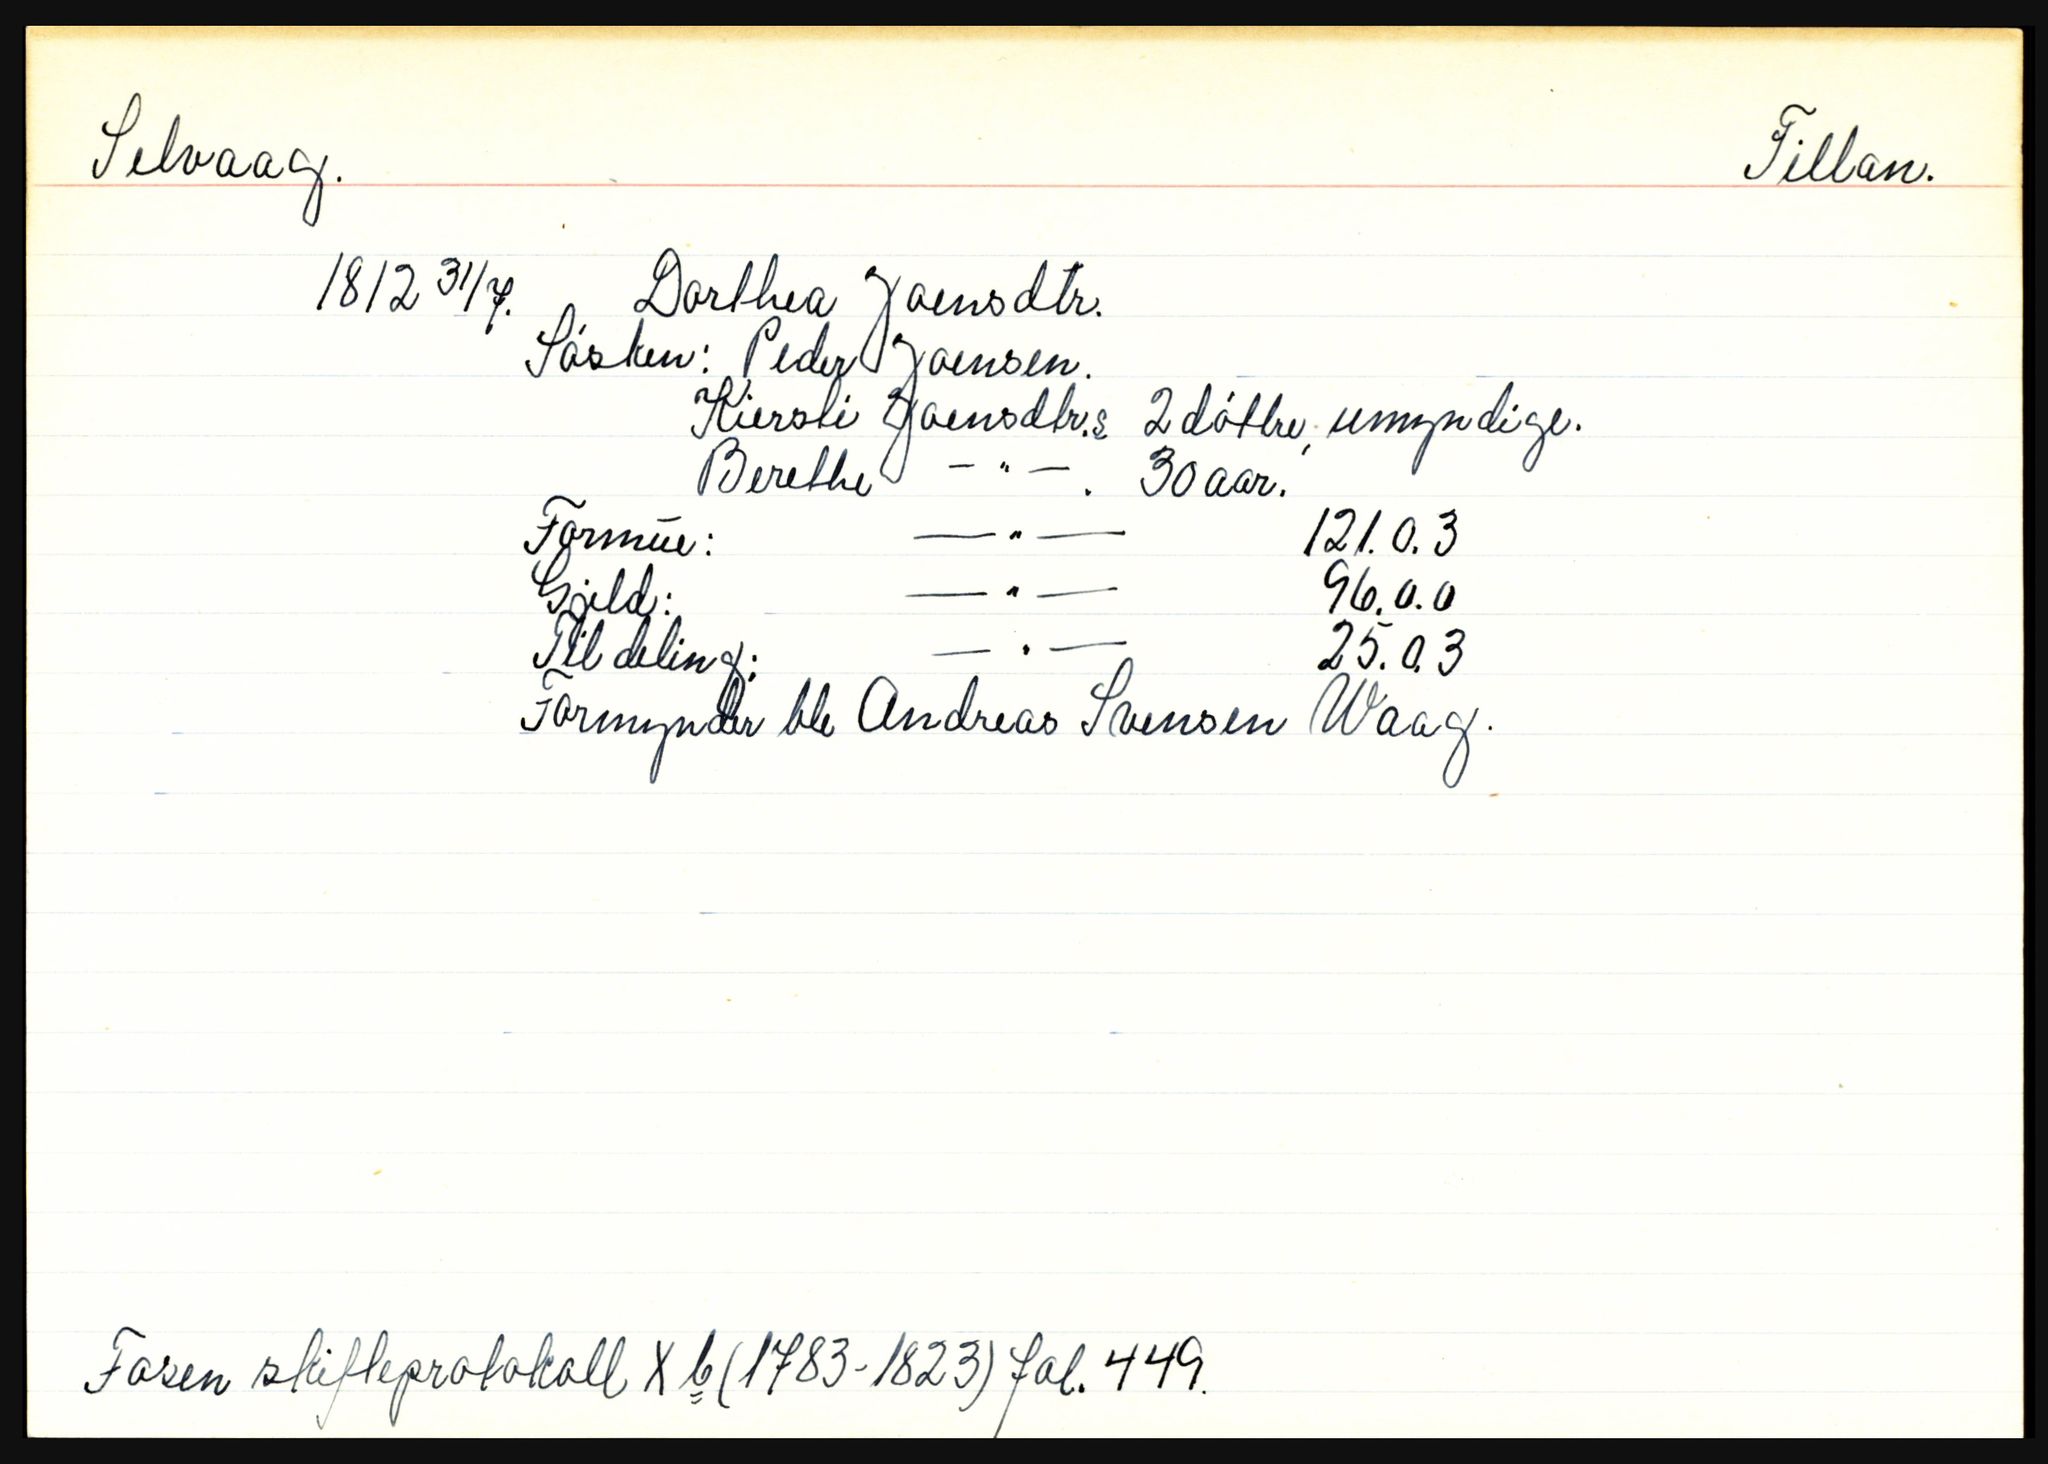 Selvaag. Fillan.
1812 31/7. Dorthea Joensdtr.
Søsken: Peder Joensen.
Kiersti Joensdtr.s 2 døttre, umyndige.
Berethe — " — . 30 aar.
Formue: — " — 121.0.3
Gjeld: — " — 96.0.0
Til deling: — " — 25.0.3
Formynder ble Andreas Svensen Waag.
Fosen skifteprotokoll X b (1783-1823) fol. 449.